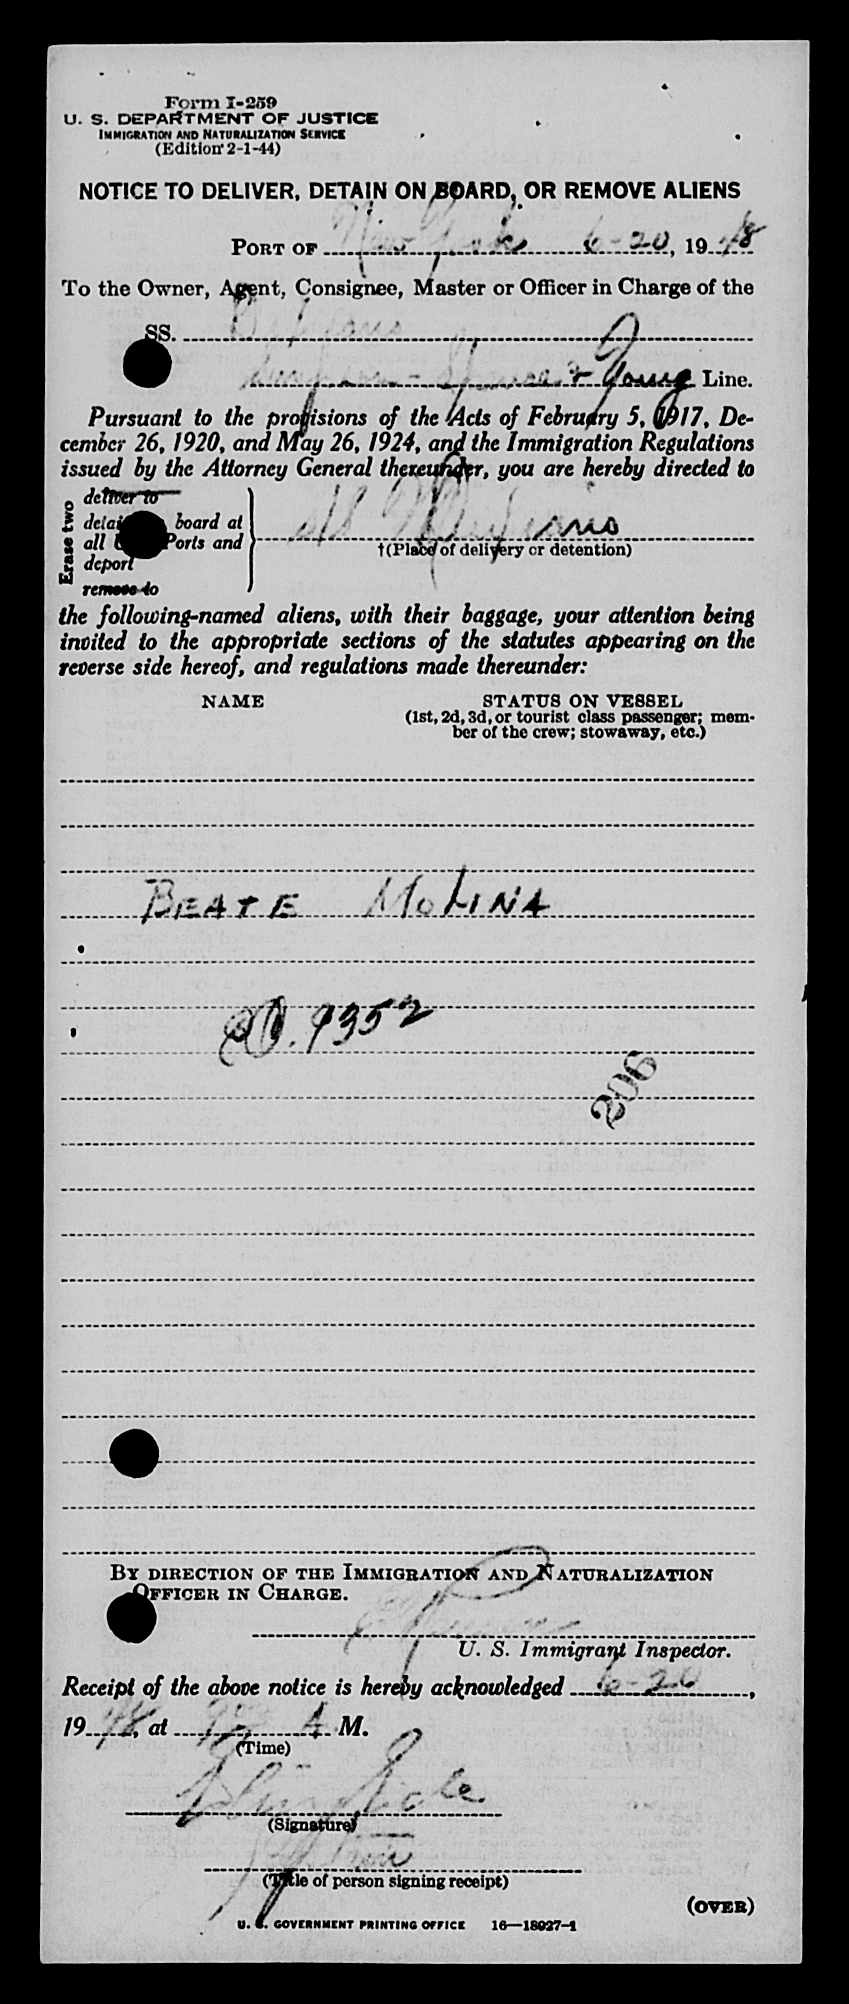 Form I-259
U. S. DEPARTMENT OF JUSTICE
IMMIGRATION AND NATURALIZATION SERVICE
(Edition 2-1-44)
NOTICE TO DELIVER, DETAIN ON BOARD, OR REMOVE ALIENS
PORT OF New York 6-20, 1948
To the Owner, Agent, Consignee, Master or Officer in Charge of the
SS.
& Young Line.
Pursuant to the provisions of the Acts of February 5, 1917, De-
cember 26, 1920, and May 26, 1924, and the Immigration Regulations
issued by the Attorney General thereunder, you are hereby directed to
Erase two
deliver to
board at
all Ports and
deport
remove to
SS
†(Place of delivery or detention)
the following-named aliens, with their baggage, your attention being
invited to the appropriate sections of the statutes appearing on the
reverse side hereof, and regulations made thereunder:
NAME STATUS ON VESSEL
(1st, 2d, 3d, or tourist class passenger; mem-
ber of the crew; stowaway, etc.)
BEATE MOLINA
9352
206
BY DIRECTION OF THE IMMIGRATION AND NATURALIZATION
OFFICER IN CHARGE.
U. S. Immigrant Inspector.
Receipt of the above notice is hereby acknowledged 6-20,
1948, at A. M.
(Time)
(Signature)
(Title of person signing receipt)
(OVER)
U. S. GOVERNMENT PRINTING OFFICE 16—18927-1